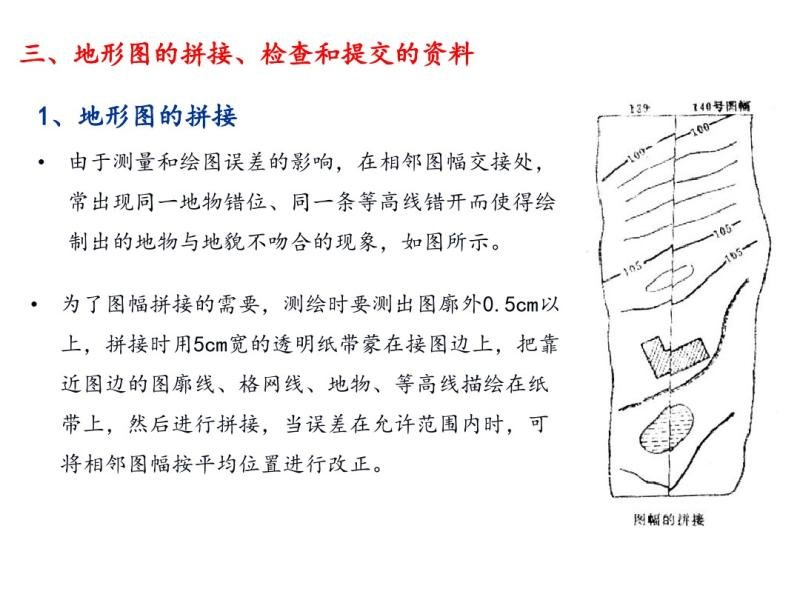 三、地形图的拼接、检查和提交的资料
1、地形图的拼接
• 由于测量和绘图误差的影响，在相邻图幅交接处，
常出现同一地物错位、同一条等高线错开而使得绘
制出的地物与地貌不吻合的现象，如图所示。
• 为了图幅拼接的需要，测绘时要测出图廓外0.5cm以
上，拼接时用5cm宽的透明纸带蒙在接图边上，把靠
近图边的图廓线、格网线、地物、等高线描绘在纸
带上，然后进行拼接，当误差在允许范围内时，可
将相邻图幅按平均位置进行改正。
139 140号图幅
100 100
105
105 105
图幅的拼接